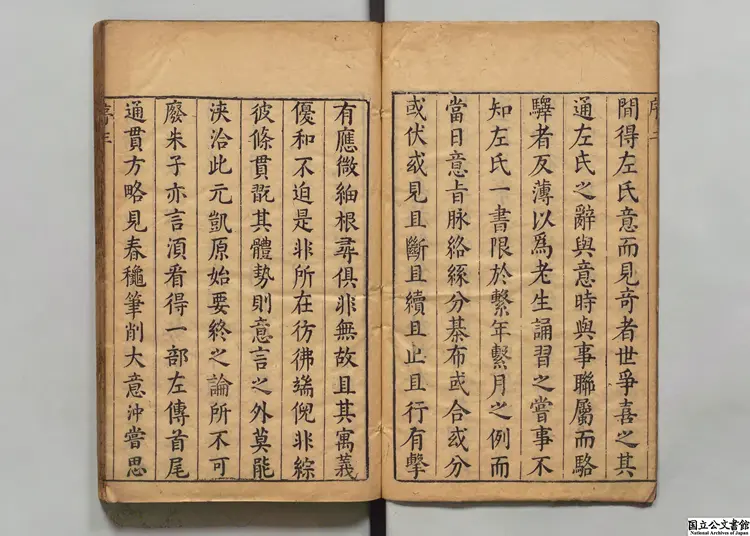 間得左氏意而見奇者世爭喜之其
通左氏之辭與意時與事聯屬而駱
驛者反薄以爲老生誦習之嘗事不
知左氏一書限於繫年繫月之例而
當日意旨脉絡絛分棊布或合或分
或伏或見且斷且續且止且行有擊
有應微紬根尋俱非無故且其寓義
優和不迫是非所在彷彿端倪非綜
彼條貫翫其體勢則意言之外莫能
浹洽此元凱原始要終之論所不可
廢朱子亦言湏看得一部左傳首尾
通貫方略見春穐筆削大意沖嘗思
国立公文書館
National Archives of Japan